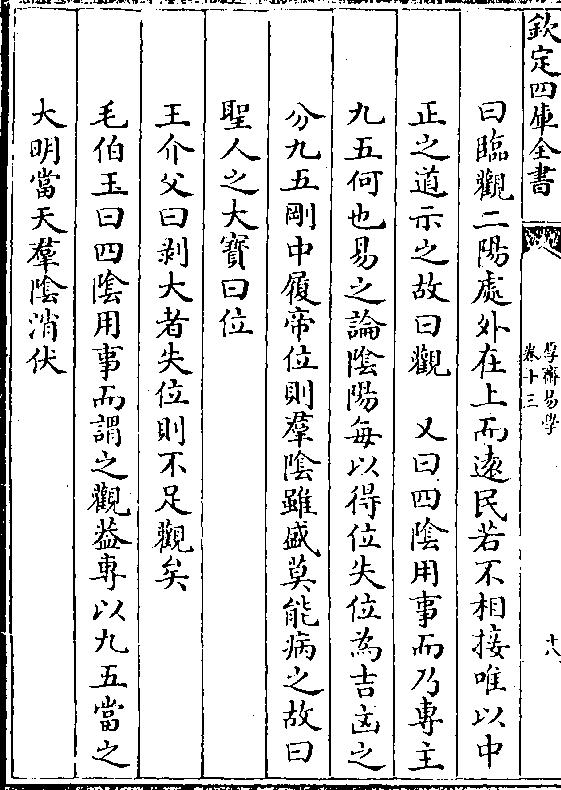 欽定四庫全書
厚齋易學
卷十三
十八
曰臨觀二陽處外在上而遠民若不相接唯以中
正之道示之故曰觀　又曰四陰用事而乃專主
九五何也易之論陰陽每以得位失位為吉凶之
分九五剛中履帝位則羣陰雖盛莫能病之故曰
聖人之大寳曰位
王介父曰剥大者失位則不足觀矣
毛伯玉曰四陰用事而謂之觀葢專以九五當之
大明當天羣陰消伏